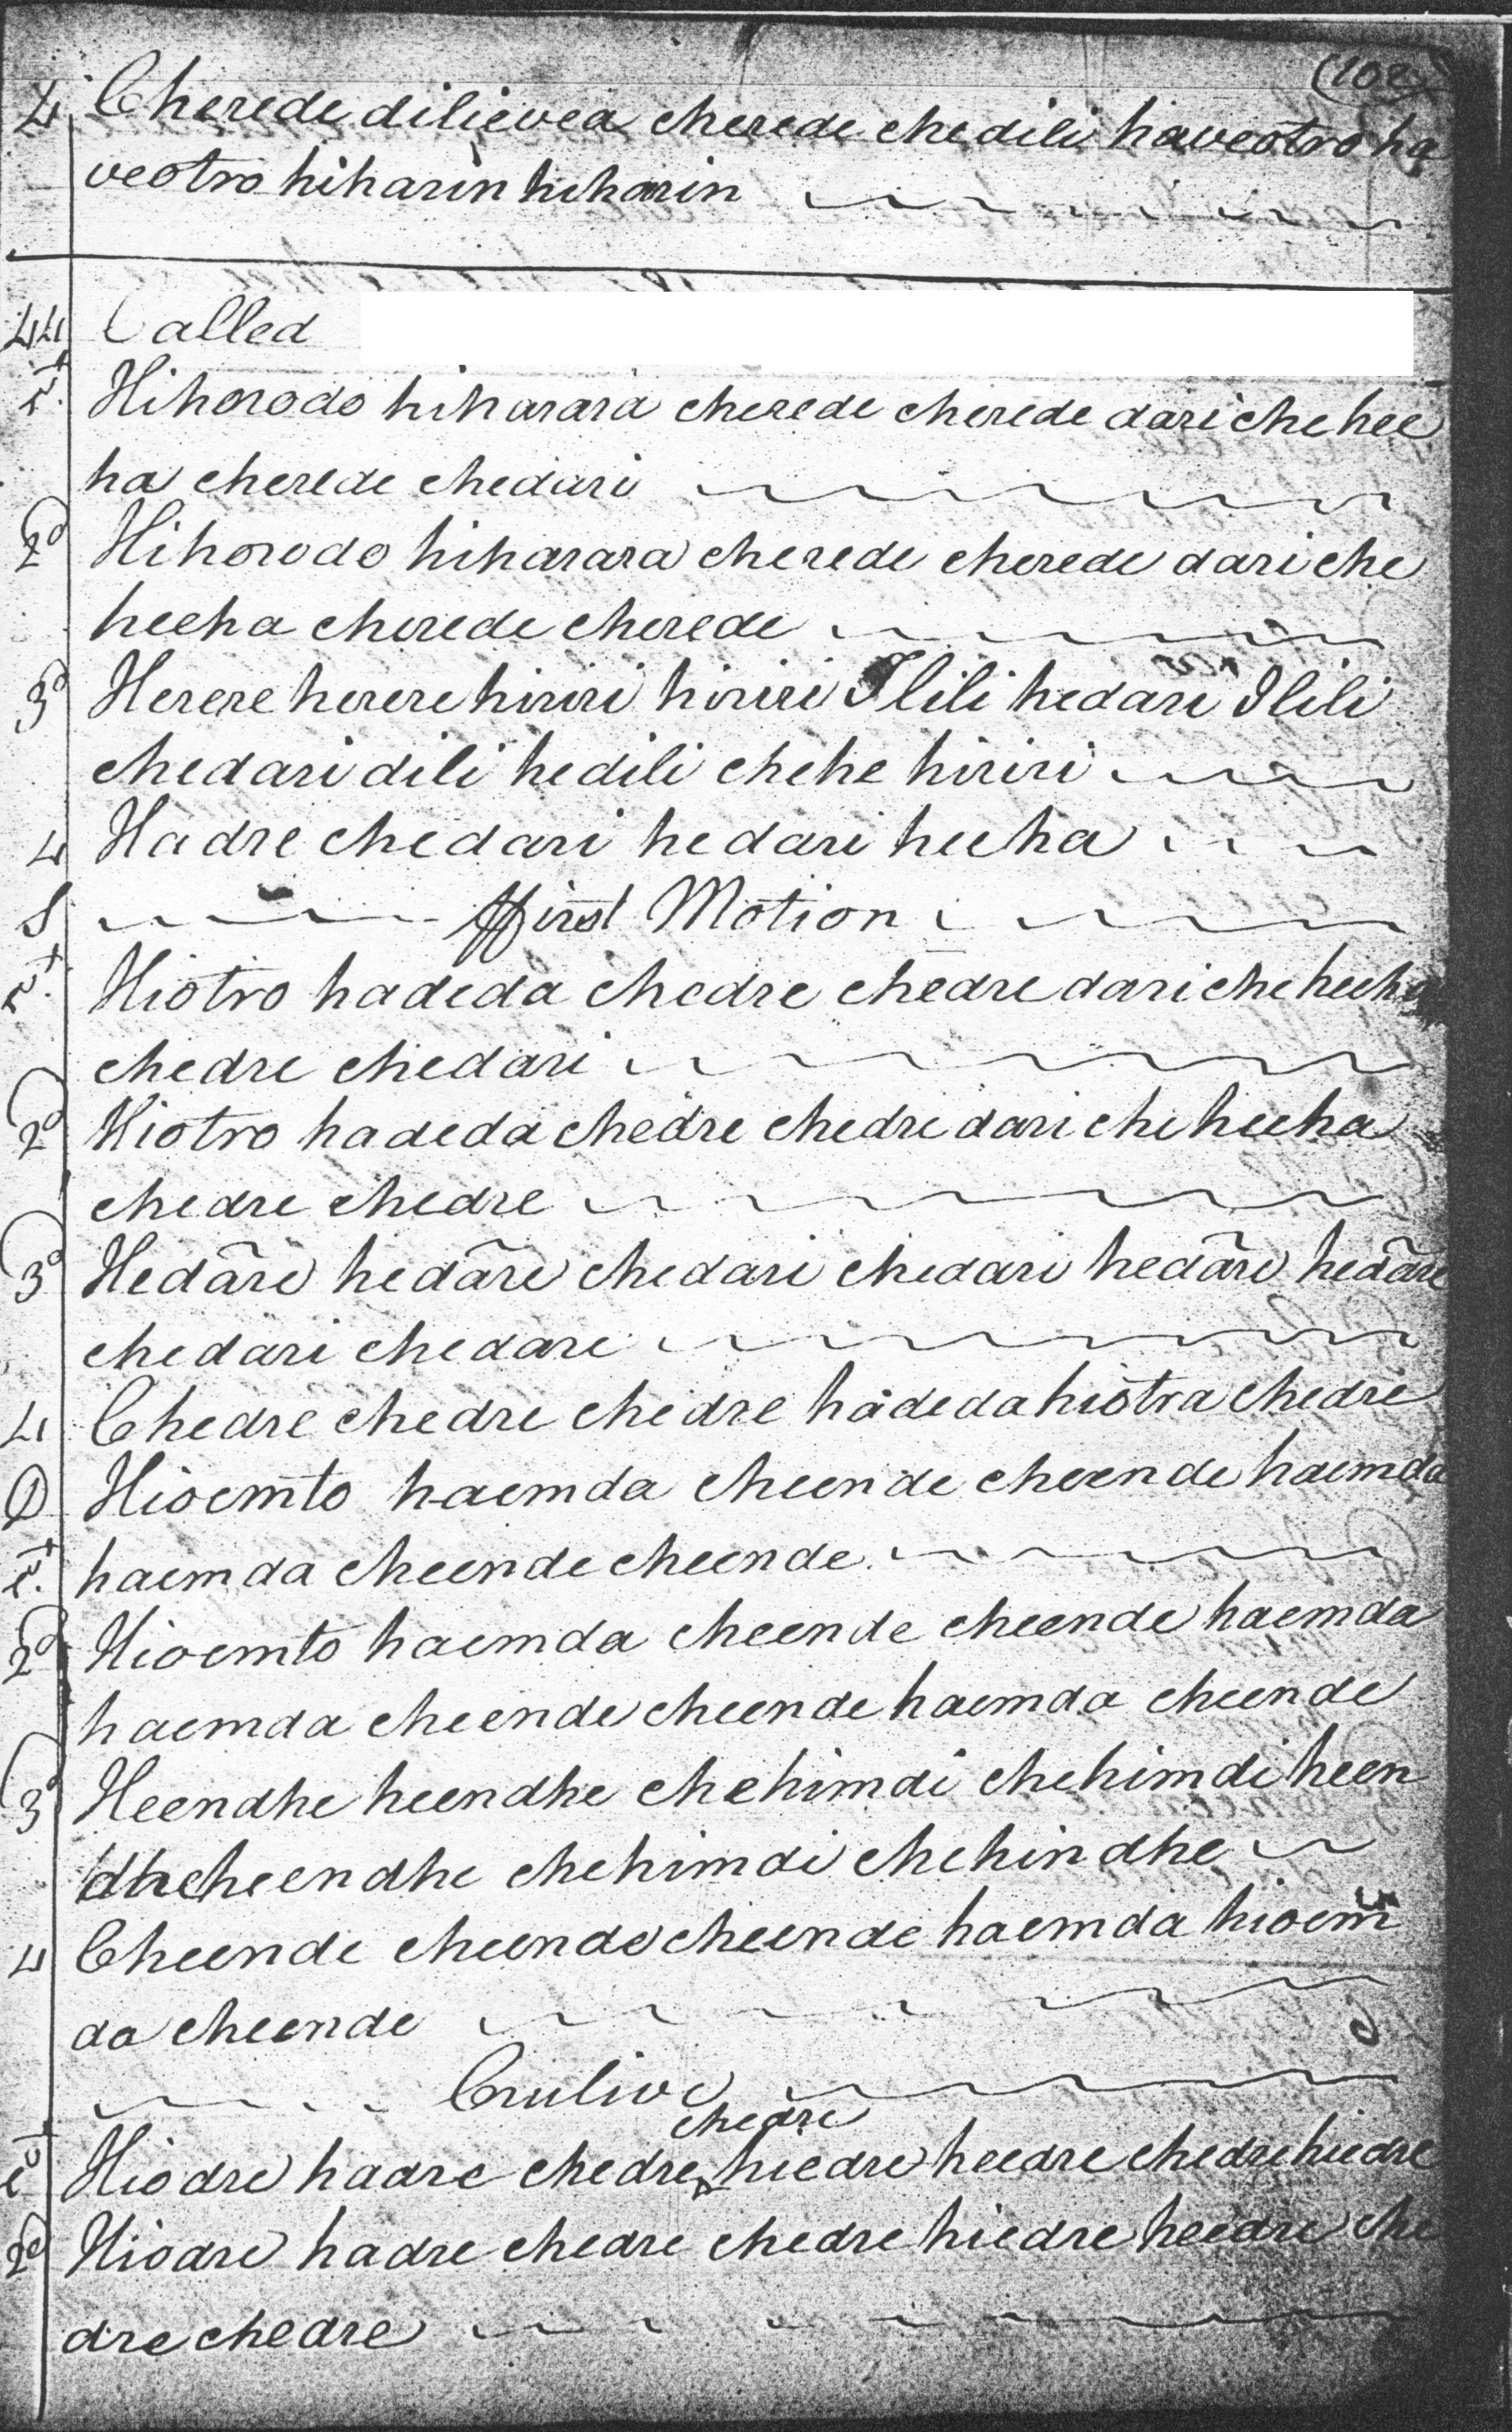 (102)
4 Cherede dilievea cherede chedili haveotro ha
veotro hiharin hiharin
44 Called
1st Hihorodo hiharara cherede cherede dari che hee
ha cherede chedari
2d Hihorodo hiharara cherede cherede dari che
heeha cherede cherede
3d Herere herere hiriri hiriri Ilili hedari Ilili
chedari dili hedili chehe hiriri
4 Hadre chedari hedari heeha
S ffirst Motion
1st Hiotro hadeda chedre chedre dari che heeha
chedre chedari
2d Hiotro hadeda chedre chedre dari che heeha
chedre chedre
3d Hedāri hedāri chedari chedari hedāri hedāri
chedari chedari
4 Chedre chedre chedre hadeda hiotra chedre
D Hioemto haemda cheende cheende haemda
1st haemda cheende cheende
2d Hioemto haemda cheende cheende haemda
haemda cheende cheende haemda cheende
3d Heendhe heendhe chehimdi chehimdi heen
dhe heendhe chehimdi chehindhe
4 Cheende cheende cheende haemda hioem
do cheende
Crulive
chedre
1st Hiodre hadre chedre hiedre heedre chedre hiedre
2d Hiodre hadre chedre chedre hiedre heedre che
dre chedre